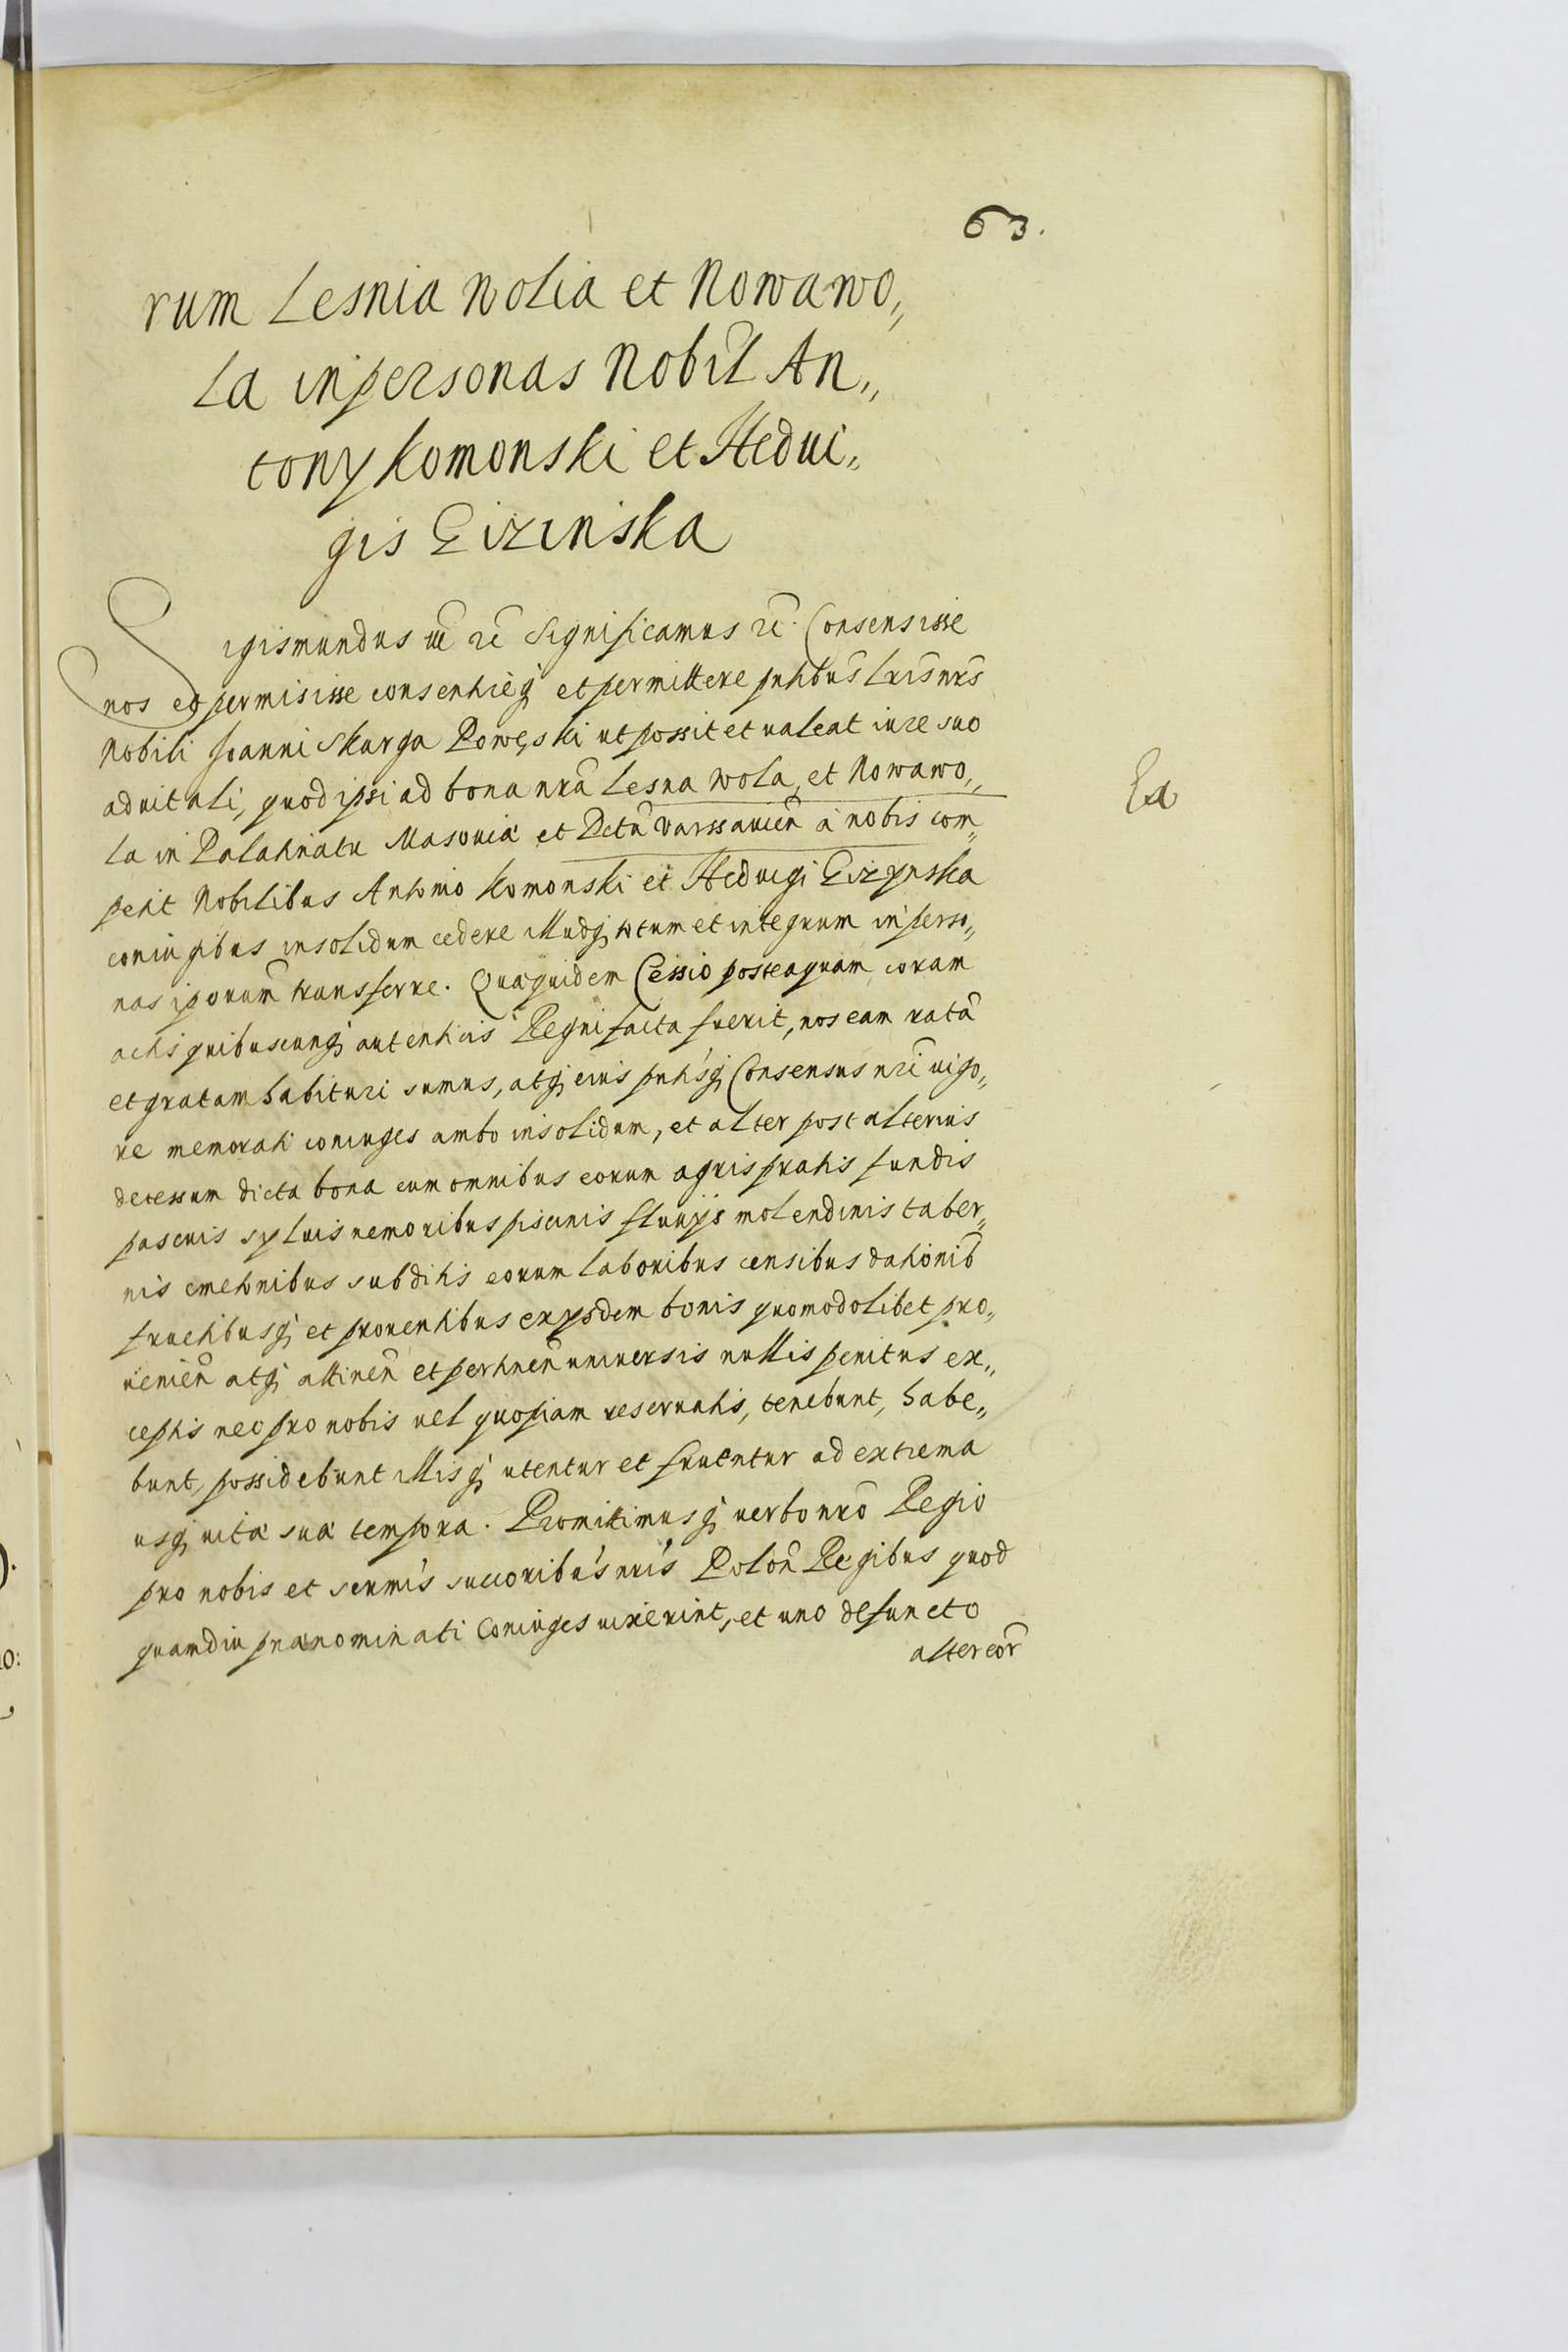 63.
rum Lesnia Wolia et Nowawo„
la in personas Nobil An„
tony Komonski et Hedui„
gis Gizinska
Sigismundus III rc̃ Significamus rc̃. Consensisse
nos et permisisse consentireq̃ et permittere pñtibus Lrĩs nrĩs
Nobili Joanni Skarga Powęski ut possit et ualeat iure suo
aduitali, quod ipsi ad bona nrã Lesna Wola, et Nowawo„
la in Palatinatu Masouiæ et Dctũ Varssauien̄ à nobis com„
petit Nobilibus Antonio Komonski et Heduigi Gizynska
coniugibus in solidum cedere illudq; totum et integrum in perso„
nas ipsorum transferre. Quæquidem Cessio posteaquam coram
actis quibuscunq; autenticis Regni facta fuerit, nos eam ratã
et gratam habituri sumus, atq; eius pñtisq; Consensus nrĩ uigo„
re memorati coniuges ambo in solidum, et alter post alterius
decessum dicta bona cum omnibus eorum agris pratis fundis
pascuis syluis nemoribus piscinis fluuys molendinis taber„
nis cmetonibus subditis eorum laboribus censibus dationib̃
fructibusq; et prouentibus ex ysdem bonis quomodolibet pro„
uenien̄ atq; attinen̄ et pertinen̄ uniuersis nullis penitus ex„
ceptis neq pro nobis uel quopiam reseruatis, tenebunt, habe„
bunt, possidebunt illisq; utentur et fruentur ad extrema
usq; uitæ suæ tempora. Promittimusq; uerbo nrõ Regio
pro nobis et sernmis succoribus nrĩs Polon̄ Regibus quod
quamdiu prænominati Coniuges uixerint, et uno defuncto
alter eor̃